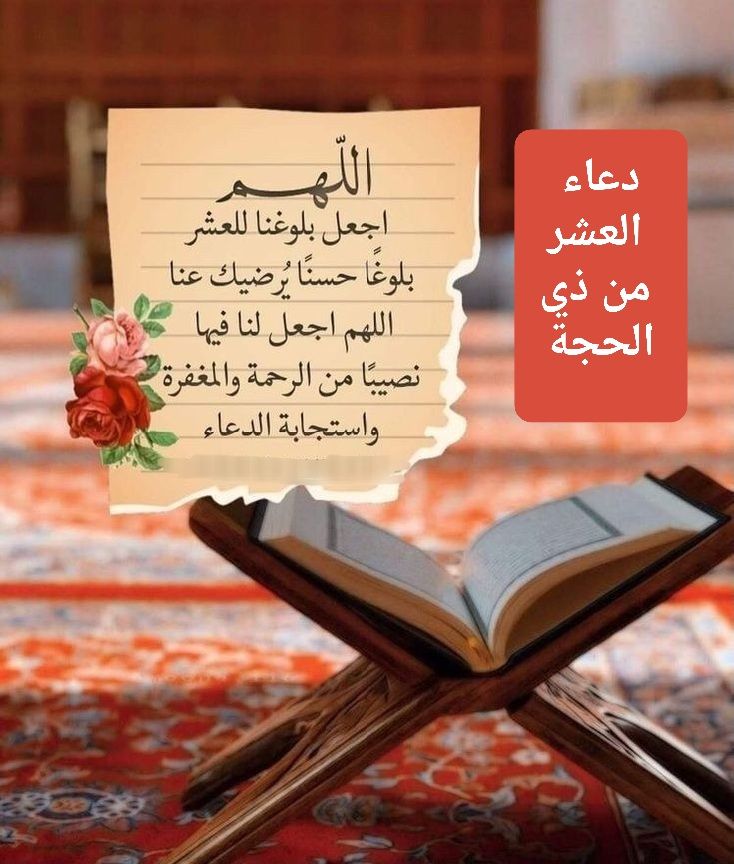 دعاء
العشر
من ذي
الحجة
اللهم
اجعل بلوغنا للعشر
بلوغًا حسنًا يُرضيك عنا
اللهم اجعل لنا فيها
نصيبًا من الرحمة والمغفرة
واستجابة الدعاء